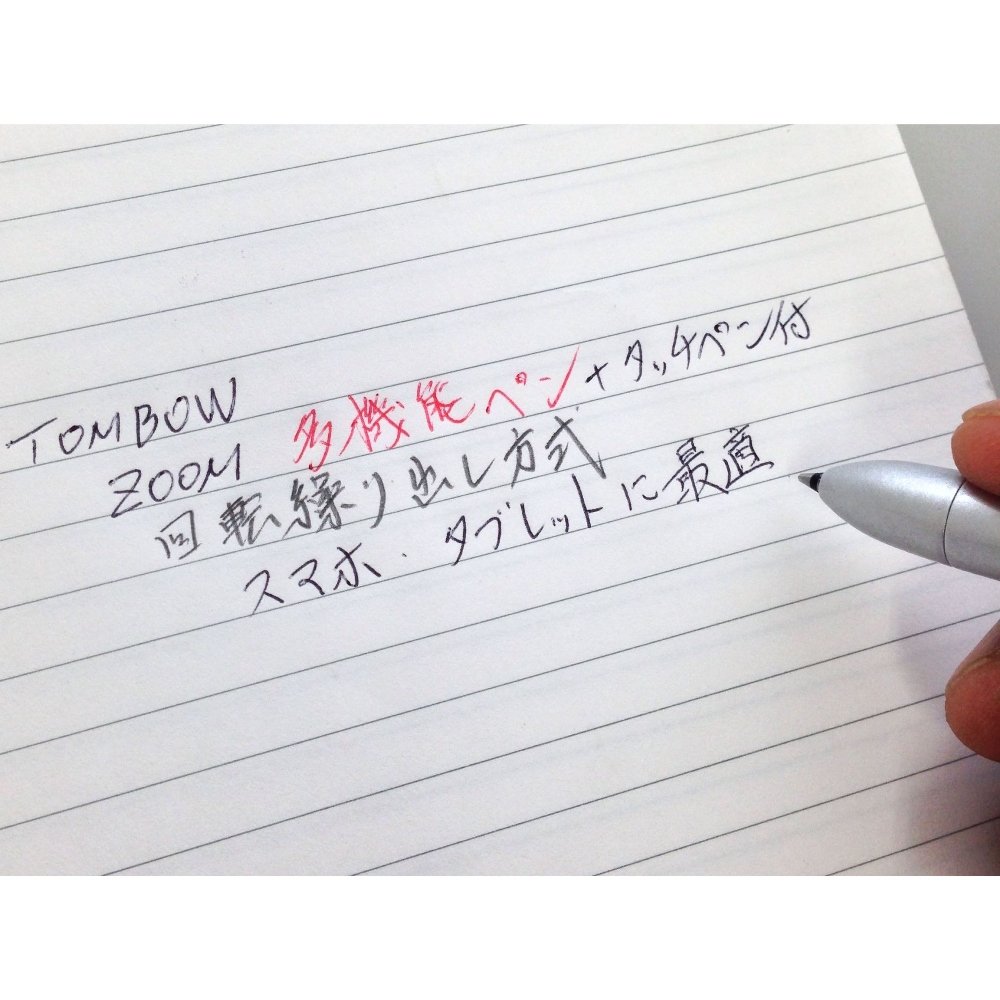 TOMBOW
ZOOM 多機能ペン+タッチペン付
回転繰り出し方式
スマホ・タブレットに最適